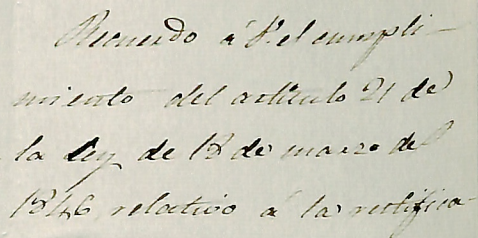 Recuerdo á V. el cumpli-
miento del artículo 21 de
la Ley de 18 de marzo de
1846 relativo á la rectifica-